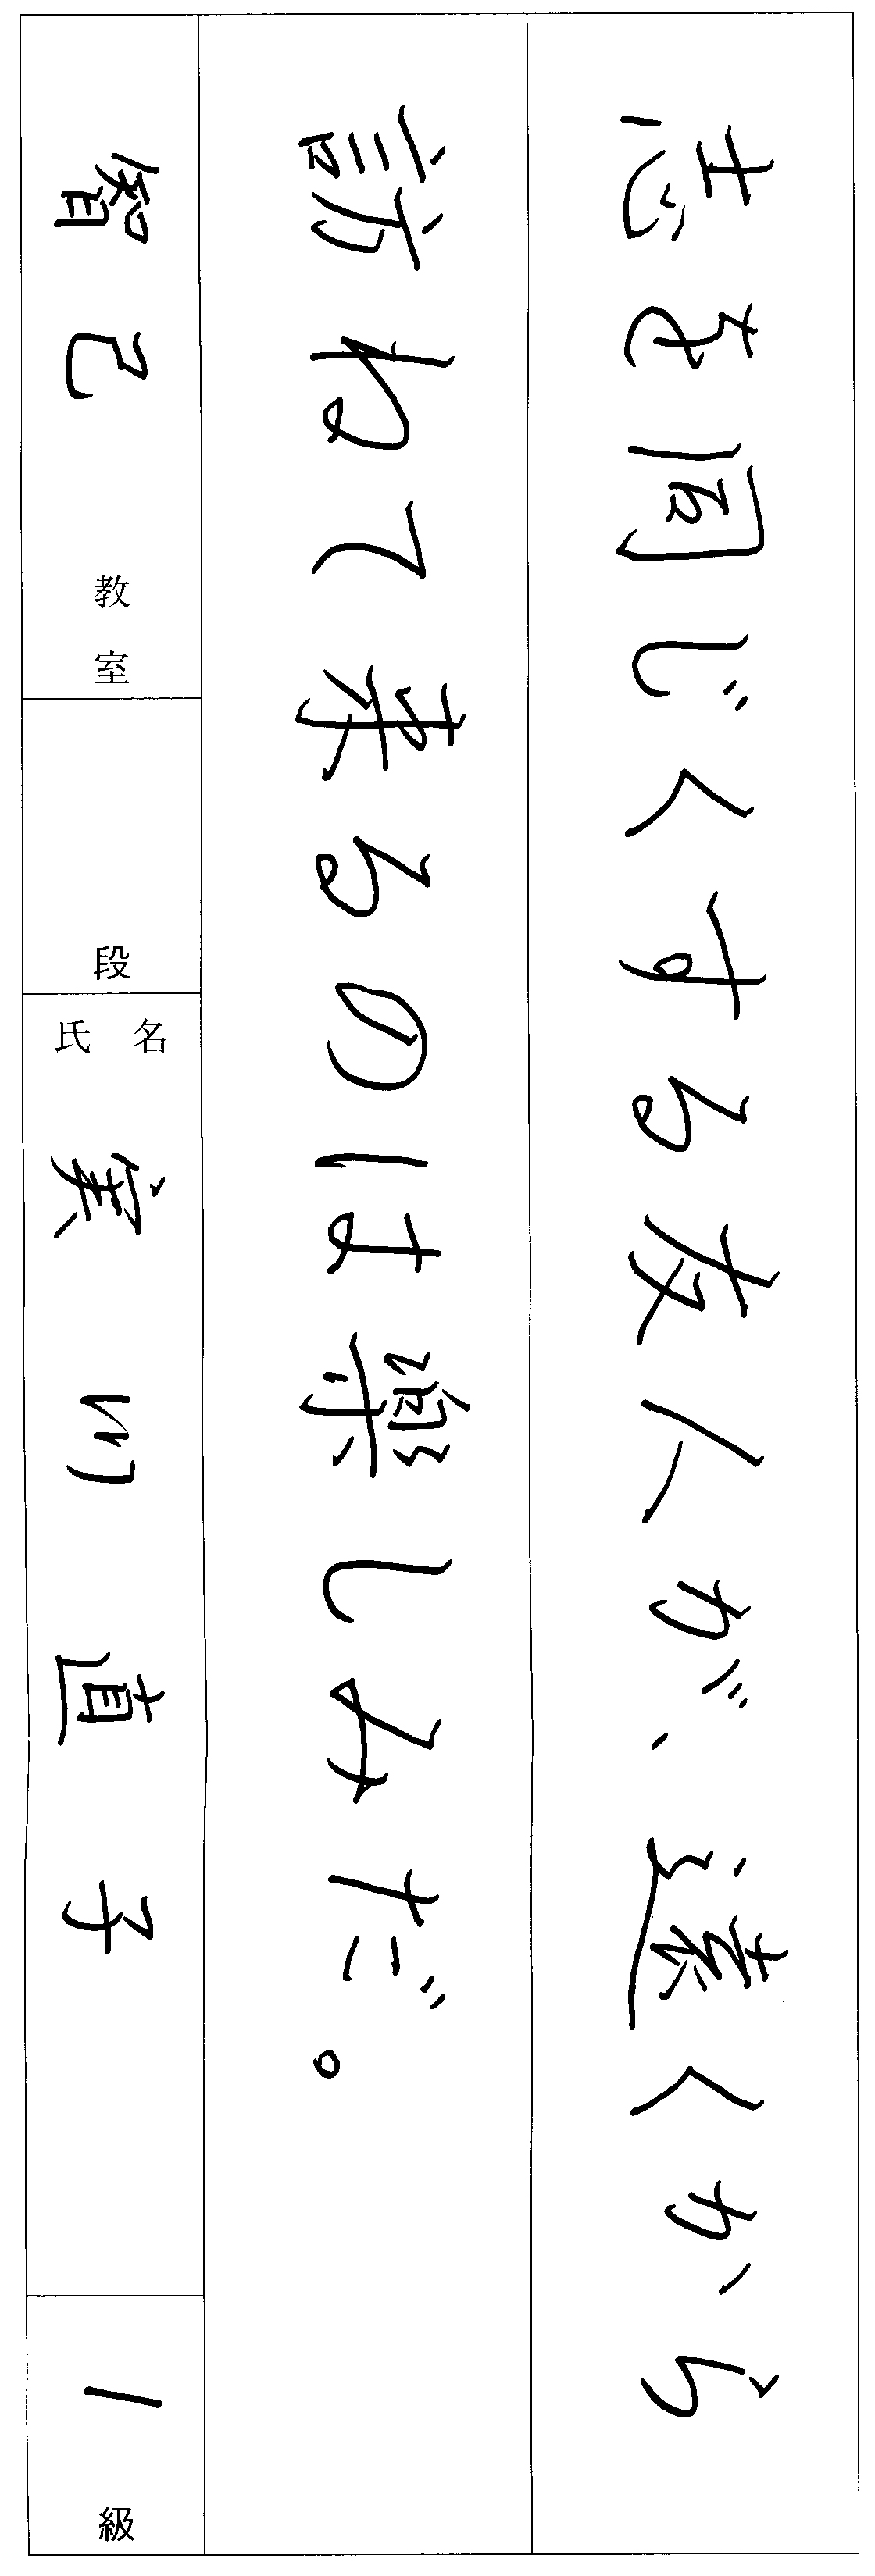 志を同じくする友人が、遠くから
訪ねて来るのは楽しみだ。
智己 教室 段 氏名 実川直子 1級